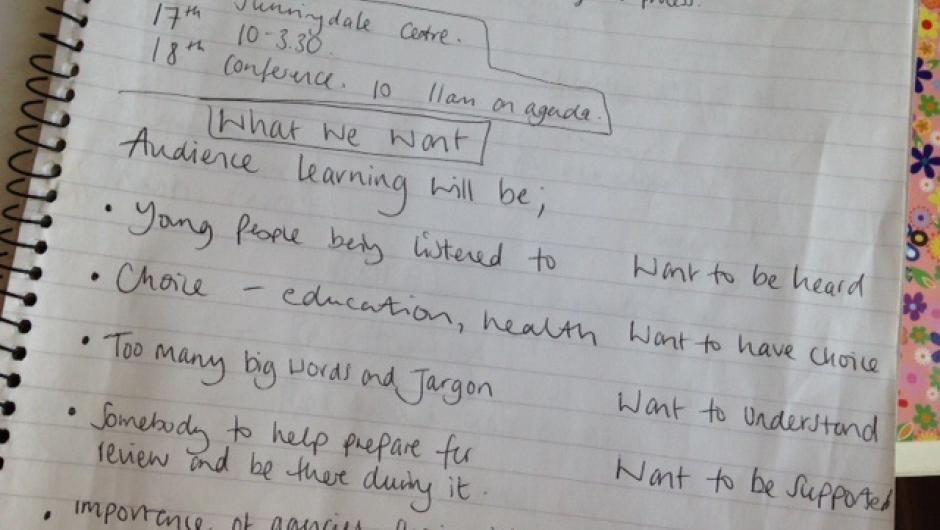 process.
17th Sunnydale Centre.
10-3.30.
18th Conference. 10 11am on agada.
What we Want
Audience learning will be;
• Young People being listened to Want to be heard
• Choice - education, health Want to have choice
• Too many big words and Jargon Want to understand
• Somebody to help prepare for Want to be supported
review and be there during it.
• importance of agencies